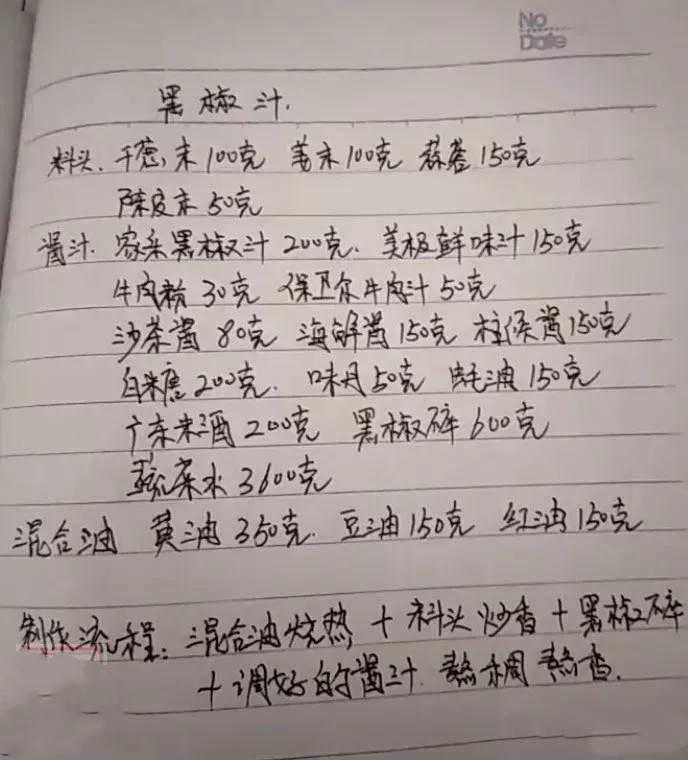 No
Date
黑椒汁.
料头. 干葱末100克 姜末100克 蒜蓉150克
陈皮末50克
酱汁. 家乐黑椒汁200克. 美极鲜味汁150克
牛肉粉30克 保卫尔牛肉汁50克
沙茶酱80克 海鲜酱150克 柱侯酱150克
白糖200克. 味丹50克 蚝油150克
广东米酒200克 黑椒碎600克
蔬菜水3600克
混合油 黄油350克. 豆油150克 红油150克
制作流程: 混合油烧热 + 料头炒香 + 黑椒碎
+ 调好的酱汁 熬稠 熬香.